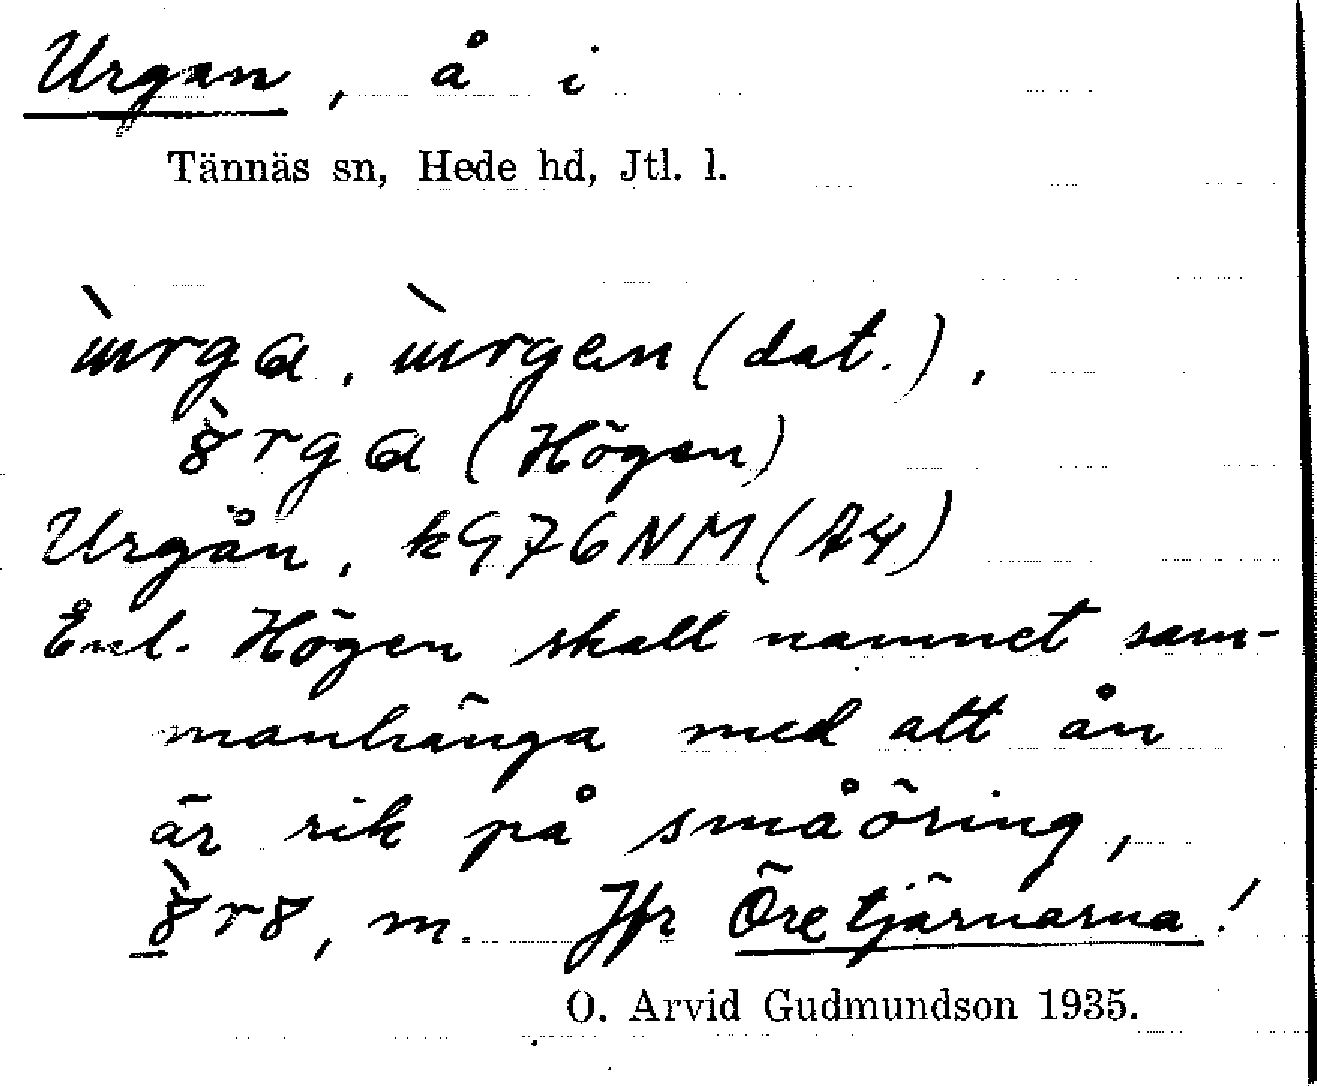 Urgan, å i
Tännäs sn, Hede hd, Jtl. l.
(dat.),
(Högen)
Urgån, kG76NM(A4)
Enl. Högen skall namnet sam-
manhänga med att ån
är rik på småöring,
m. Jfr Öretjärnarna!
O. Arvid Gudmundson 1935.